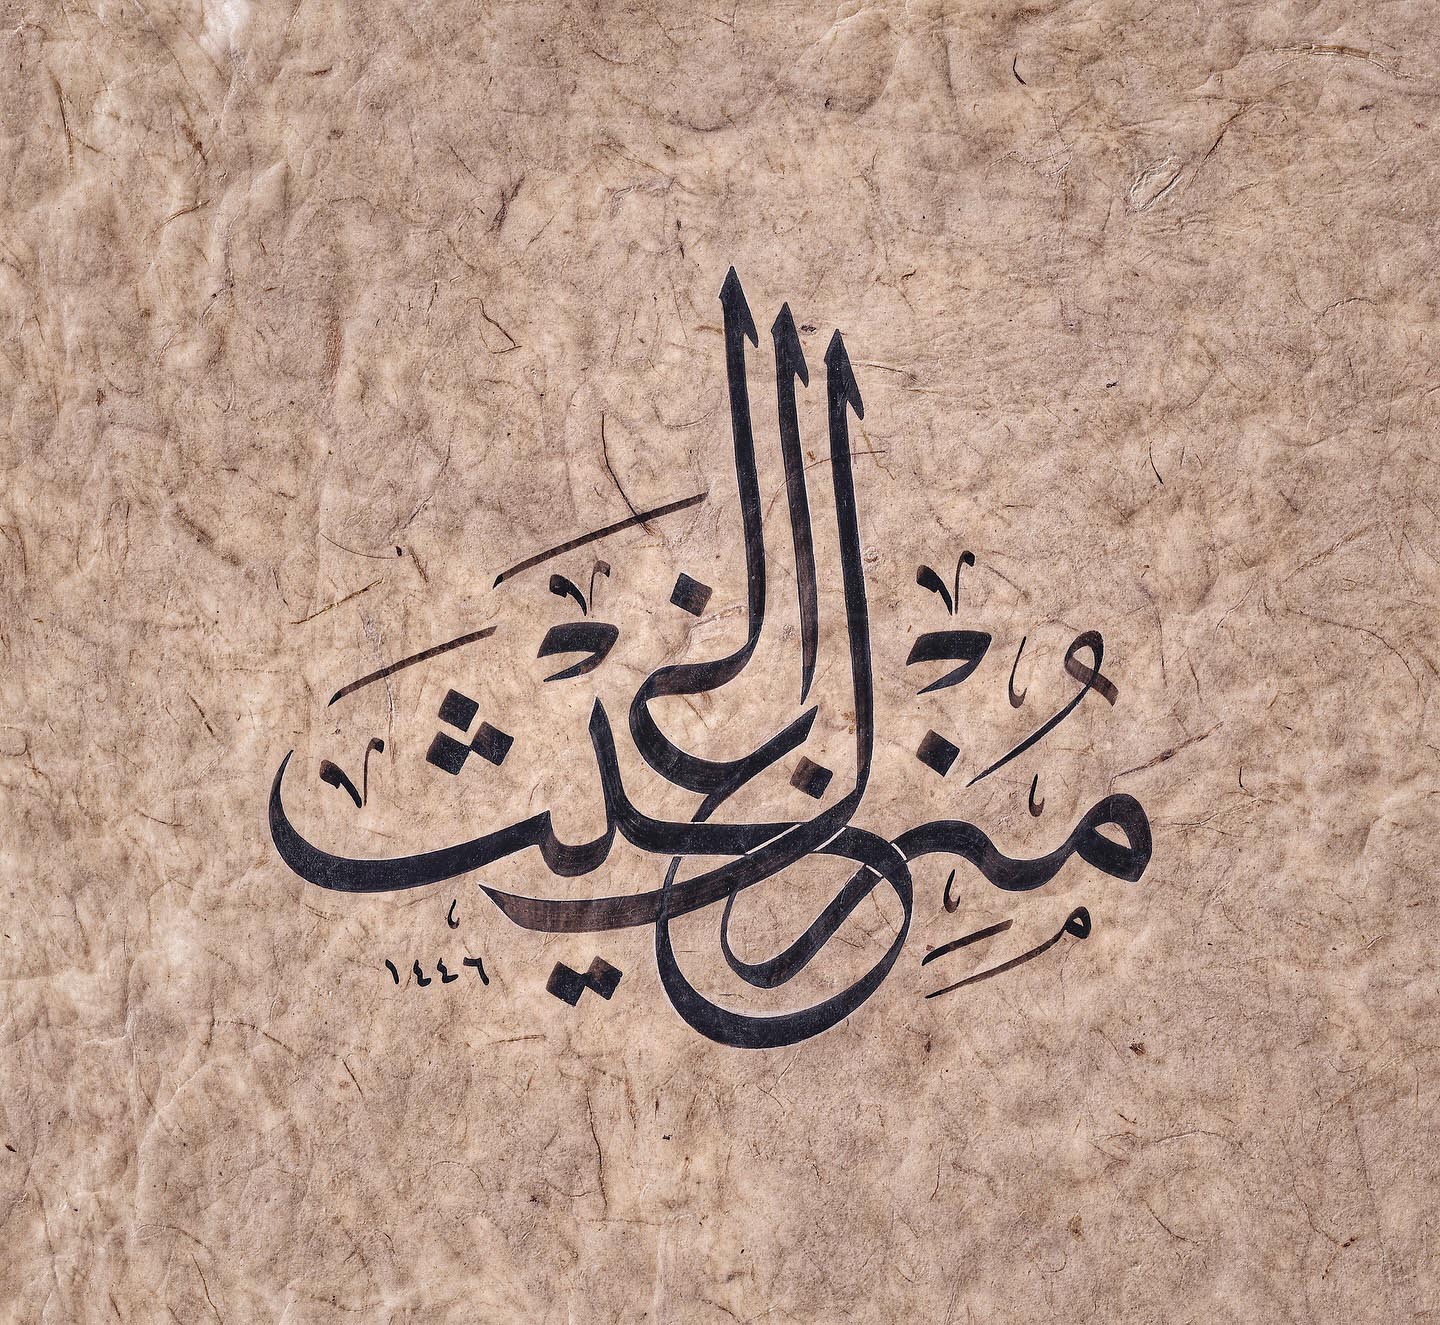 مُنْزِل الغَيْث
١٤٤٦